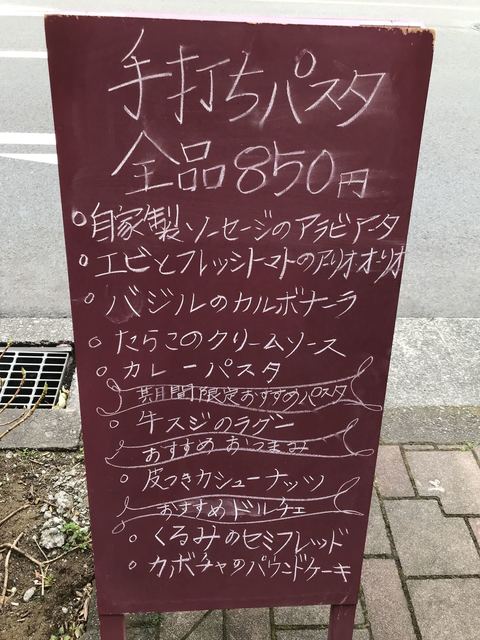 手打ちパスタ
全品850円
○自家製ソーセージのアラビアータ
○エビとフレッシュトマトのアーリオオーリオ
○バジルのカルボナーラ
○たらこのクリームソース
○カレーパスタ
期間限定おすすめパスタ
○牛スジのラグー
おすすめおつまみ
○皮つきカシューナッツ
おすすめドルチェ
○くるみのセミフレッド
○カボチャのパウンドケーキ